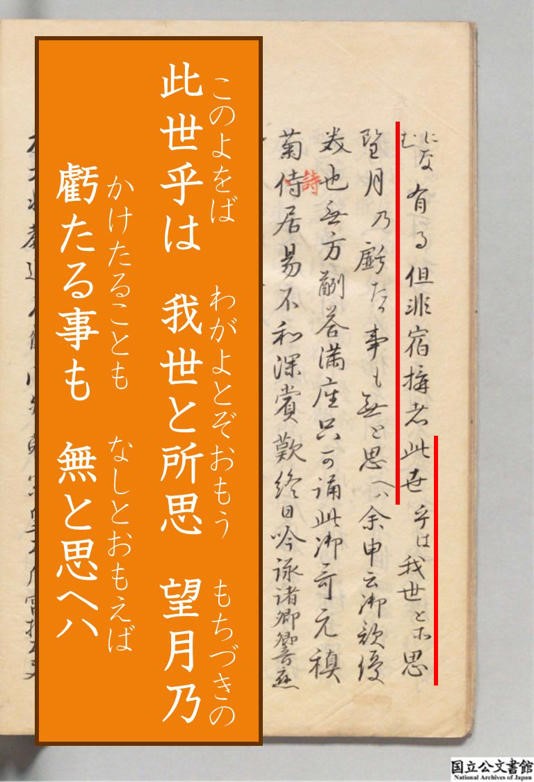 になむ
有る但非宿搆者此世乎は我世と所思
望月乃虧たる事も無と思ヘハ余申云御歌優
美也無方酬荅満座只可誦此御哥元稹
菊詩居易不和深賞歎終日吟詠諸卿響應
詩
このよをば　わがよとぞおもう　もちづきの
此世乎は　我世と所思　望月乃
かけたることも　なしとおもえば
虧たる事も　無と思ヘハ
国立公文書館
National Archives of Japan